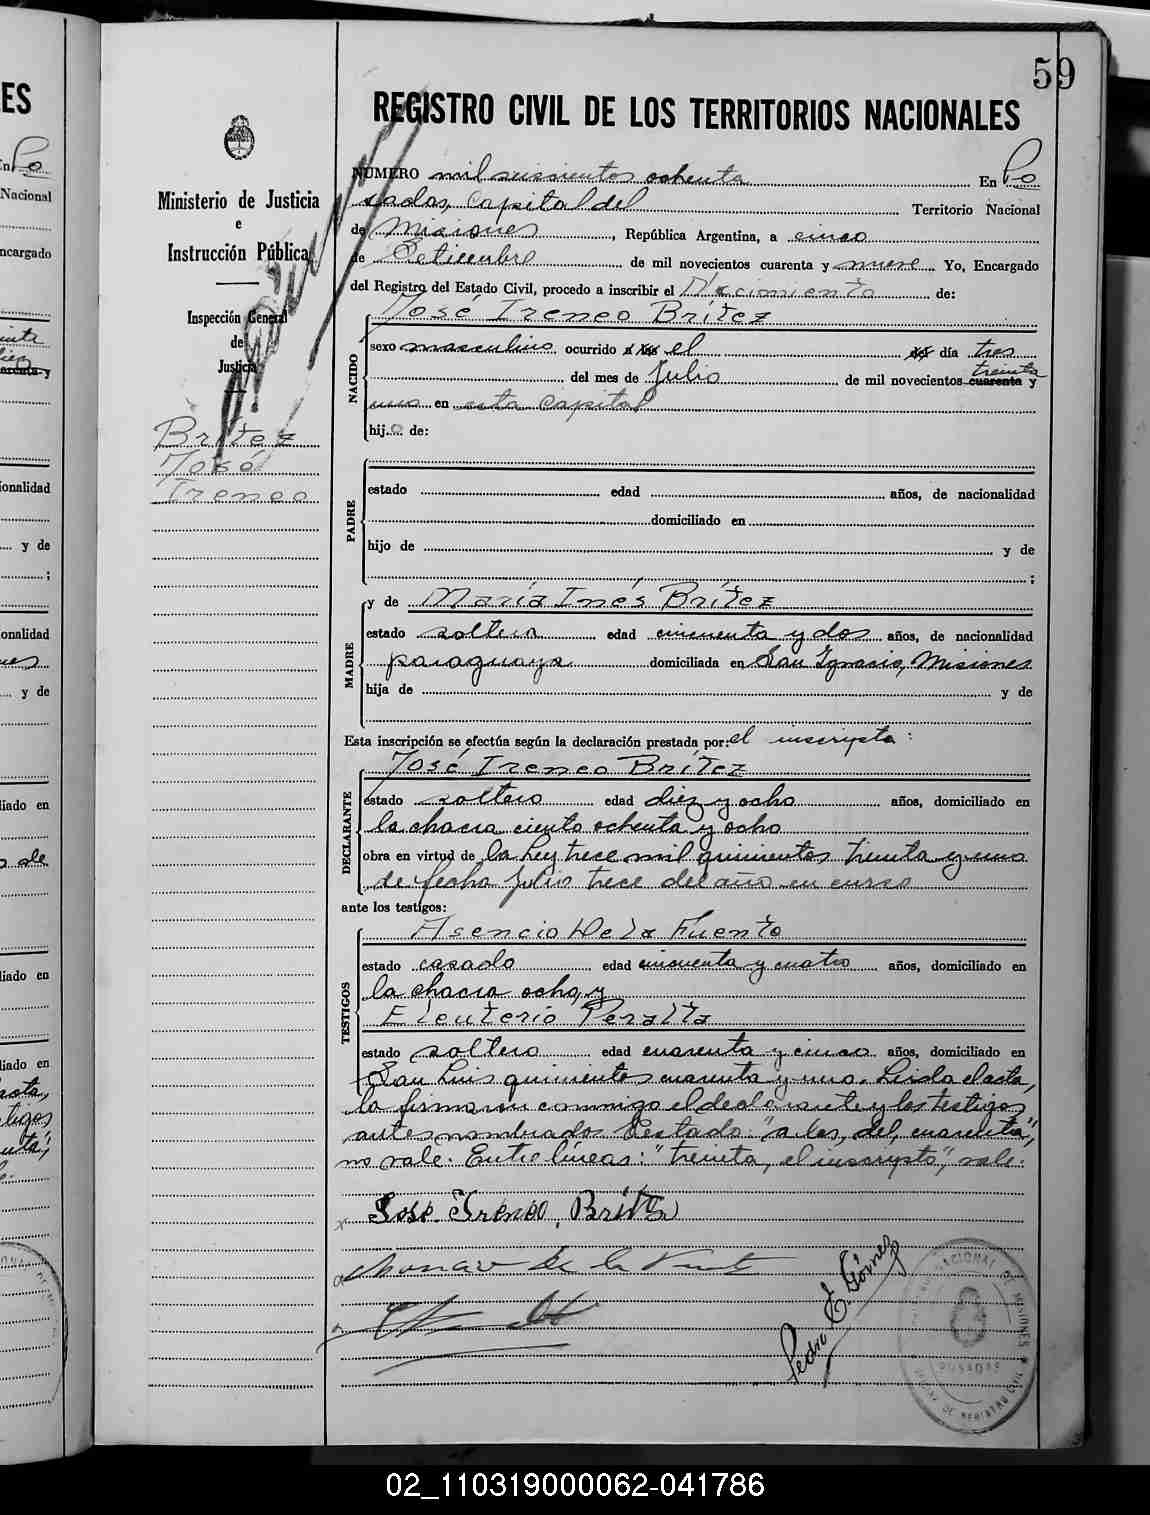 59
REGISTRO CIVIL DE LOS TERRITORIOS NACIONALES
Ministerio de Justicia
e
Instrucción Pública
Inspección General
de
Justicia
Brítez
José
Ireneo
NUMERO mil seiscientos ochenta En Po
sadas, capital del Territorio Nacional
de Misiones, República Argentina, a cinco
de Setiembre de mil novecientos cuarenta y nueve Yo, Encargado
del Registro del Estado Civil, procedo a inscribir el Nacimiento de:
José Ireneo Brítez
NACIDO
sexo masculino ocurrido a las el del día tres
del mes de Julio de mil novecientos cuarenta y
treinta
uno en esta capital
hijo de:
PADRE
estado edad años, de nacionalidad
domiciliado en
hijo de y de
;
y de María Inés Brítez
MADRE
estado soltera edad cincuenta y dos años, de nacionalidad
paraguaya domiciliada en San Ignacio, Misiones
hija de y de
Esta inscripción se efectúa según la declaración prestada por: el inscripto:
José Ireneo Brítez
DECLARANTE
estado soltero edad diez y ocho años, domiciliado en
la chacra ciento ochenta y ocho
obra en virtud de la Ley trece mil quinientos treinta y uno
de fecha Julio trece del año en curso
ante los testigos:
Asencio De la Fuente
TESTIGOS
estado casado edad cincuenta y cuatro años, domiciliado en
la chacra ocho, y
Eleuterio Peralta
estado soltero edad cuarenta y cinco años, domiciliado en
San Luis quinientos cuarenta y uno. Leida el acta,
la firmaron conmigo el declarante y los testigos
antes nombrados. Testado: "a las, del, cuarenta",
no vale. Entre líneas: "treinta, el inscripto", vale.
José Ireneo, Brítez
de la Fuente
Pedro E. Gómez
NACIONAL DE MISIONES
POSADAS
DE REGISTRO CIVIL
ES
En Po
Nacional
ncargado
cuarenta y
ionalidad
y de
;
onalidad
y de
liado en
liado en
liado en
02_110319000062-041786